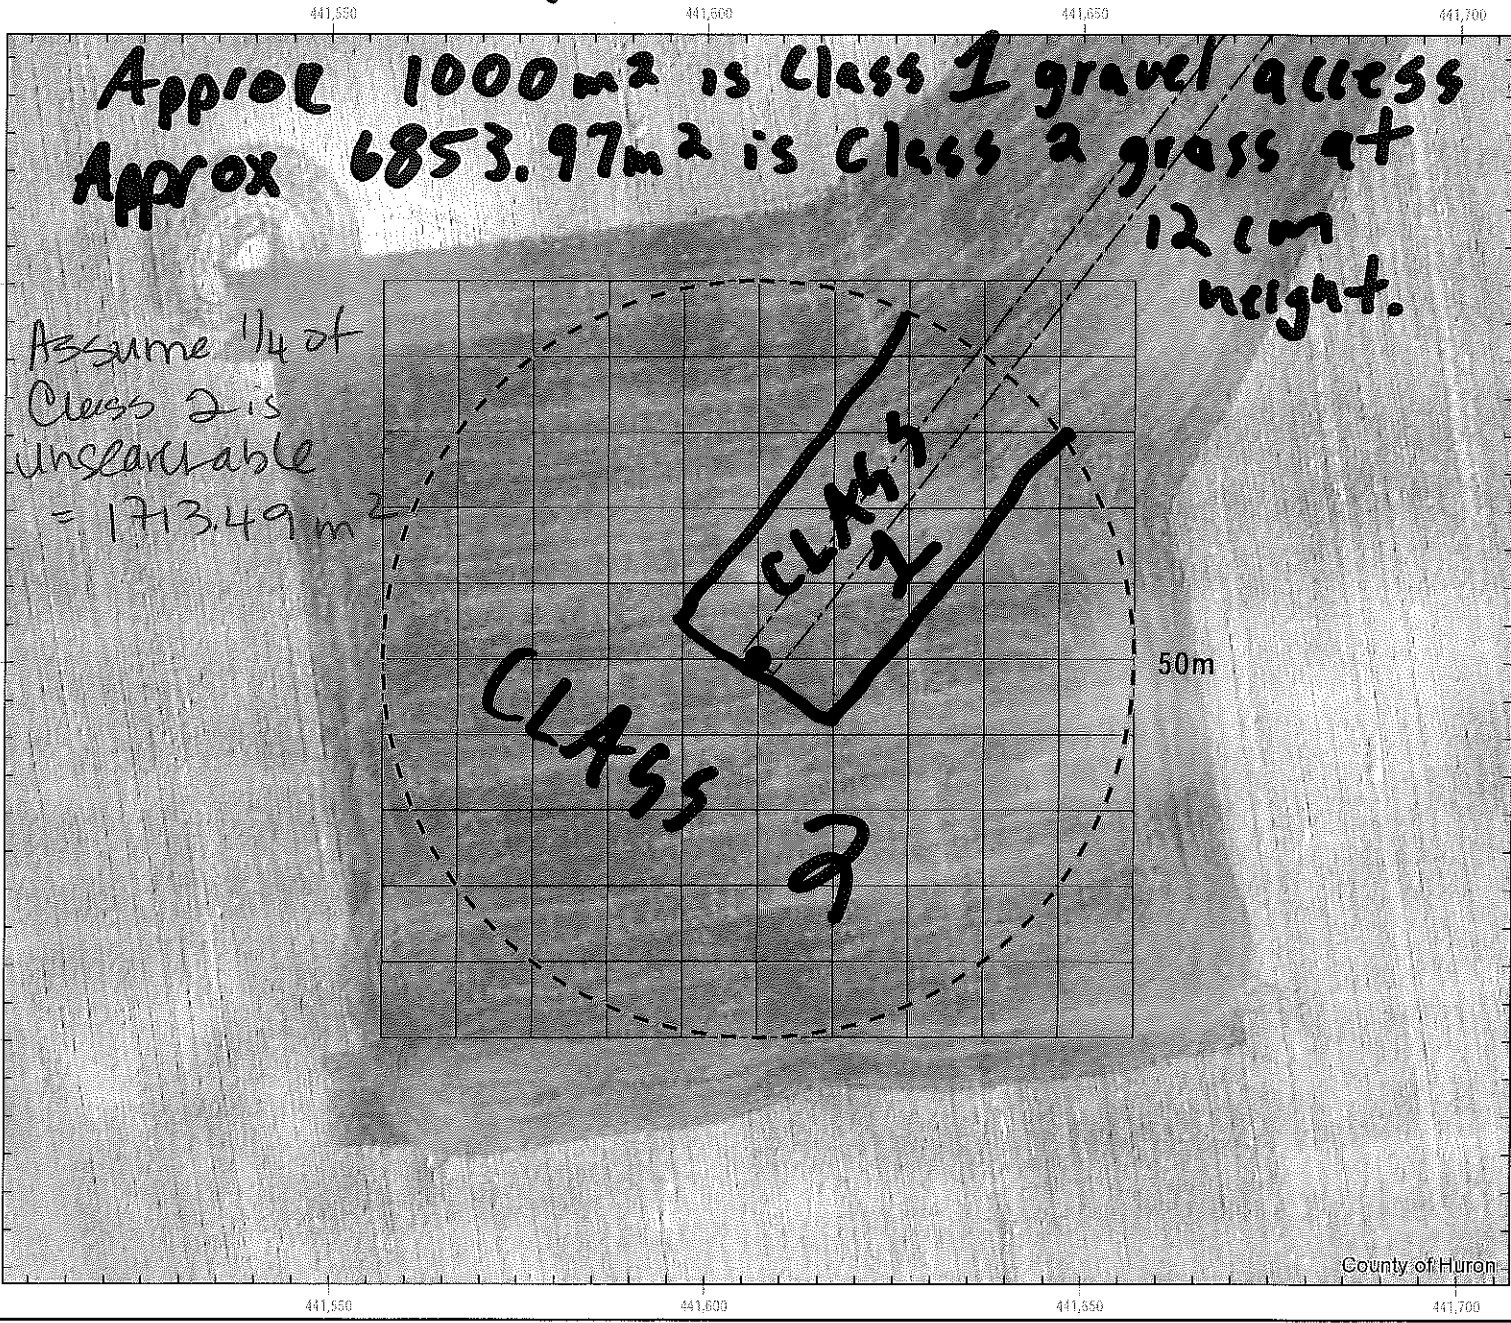 441,550 441,600 441,650 441,700
Approx 1000m² is Class 1 gravel access
Approx 6853.97m² is Class 2 grass at
12 cm
height.
Assume 1/4 of
Class 2 is
unsearchable
= 1713.49 m²
CLASS
1
50m
CLASS
2
County of Huron
441,550 441,600 441,650 441,700